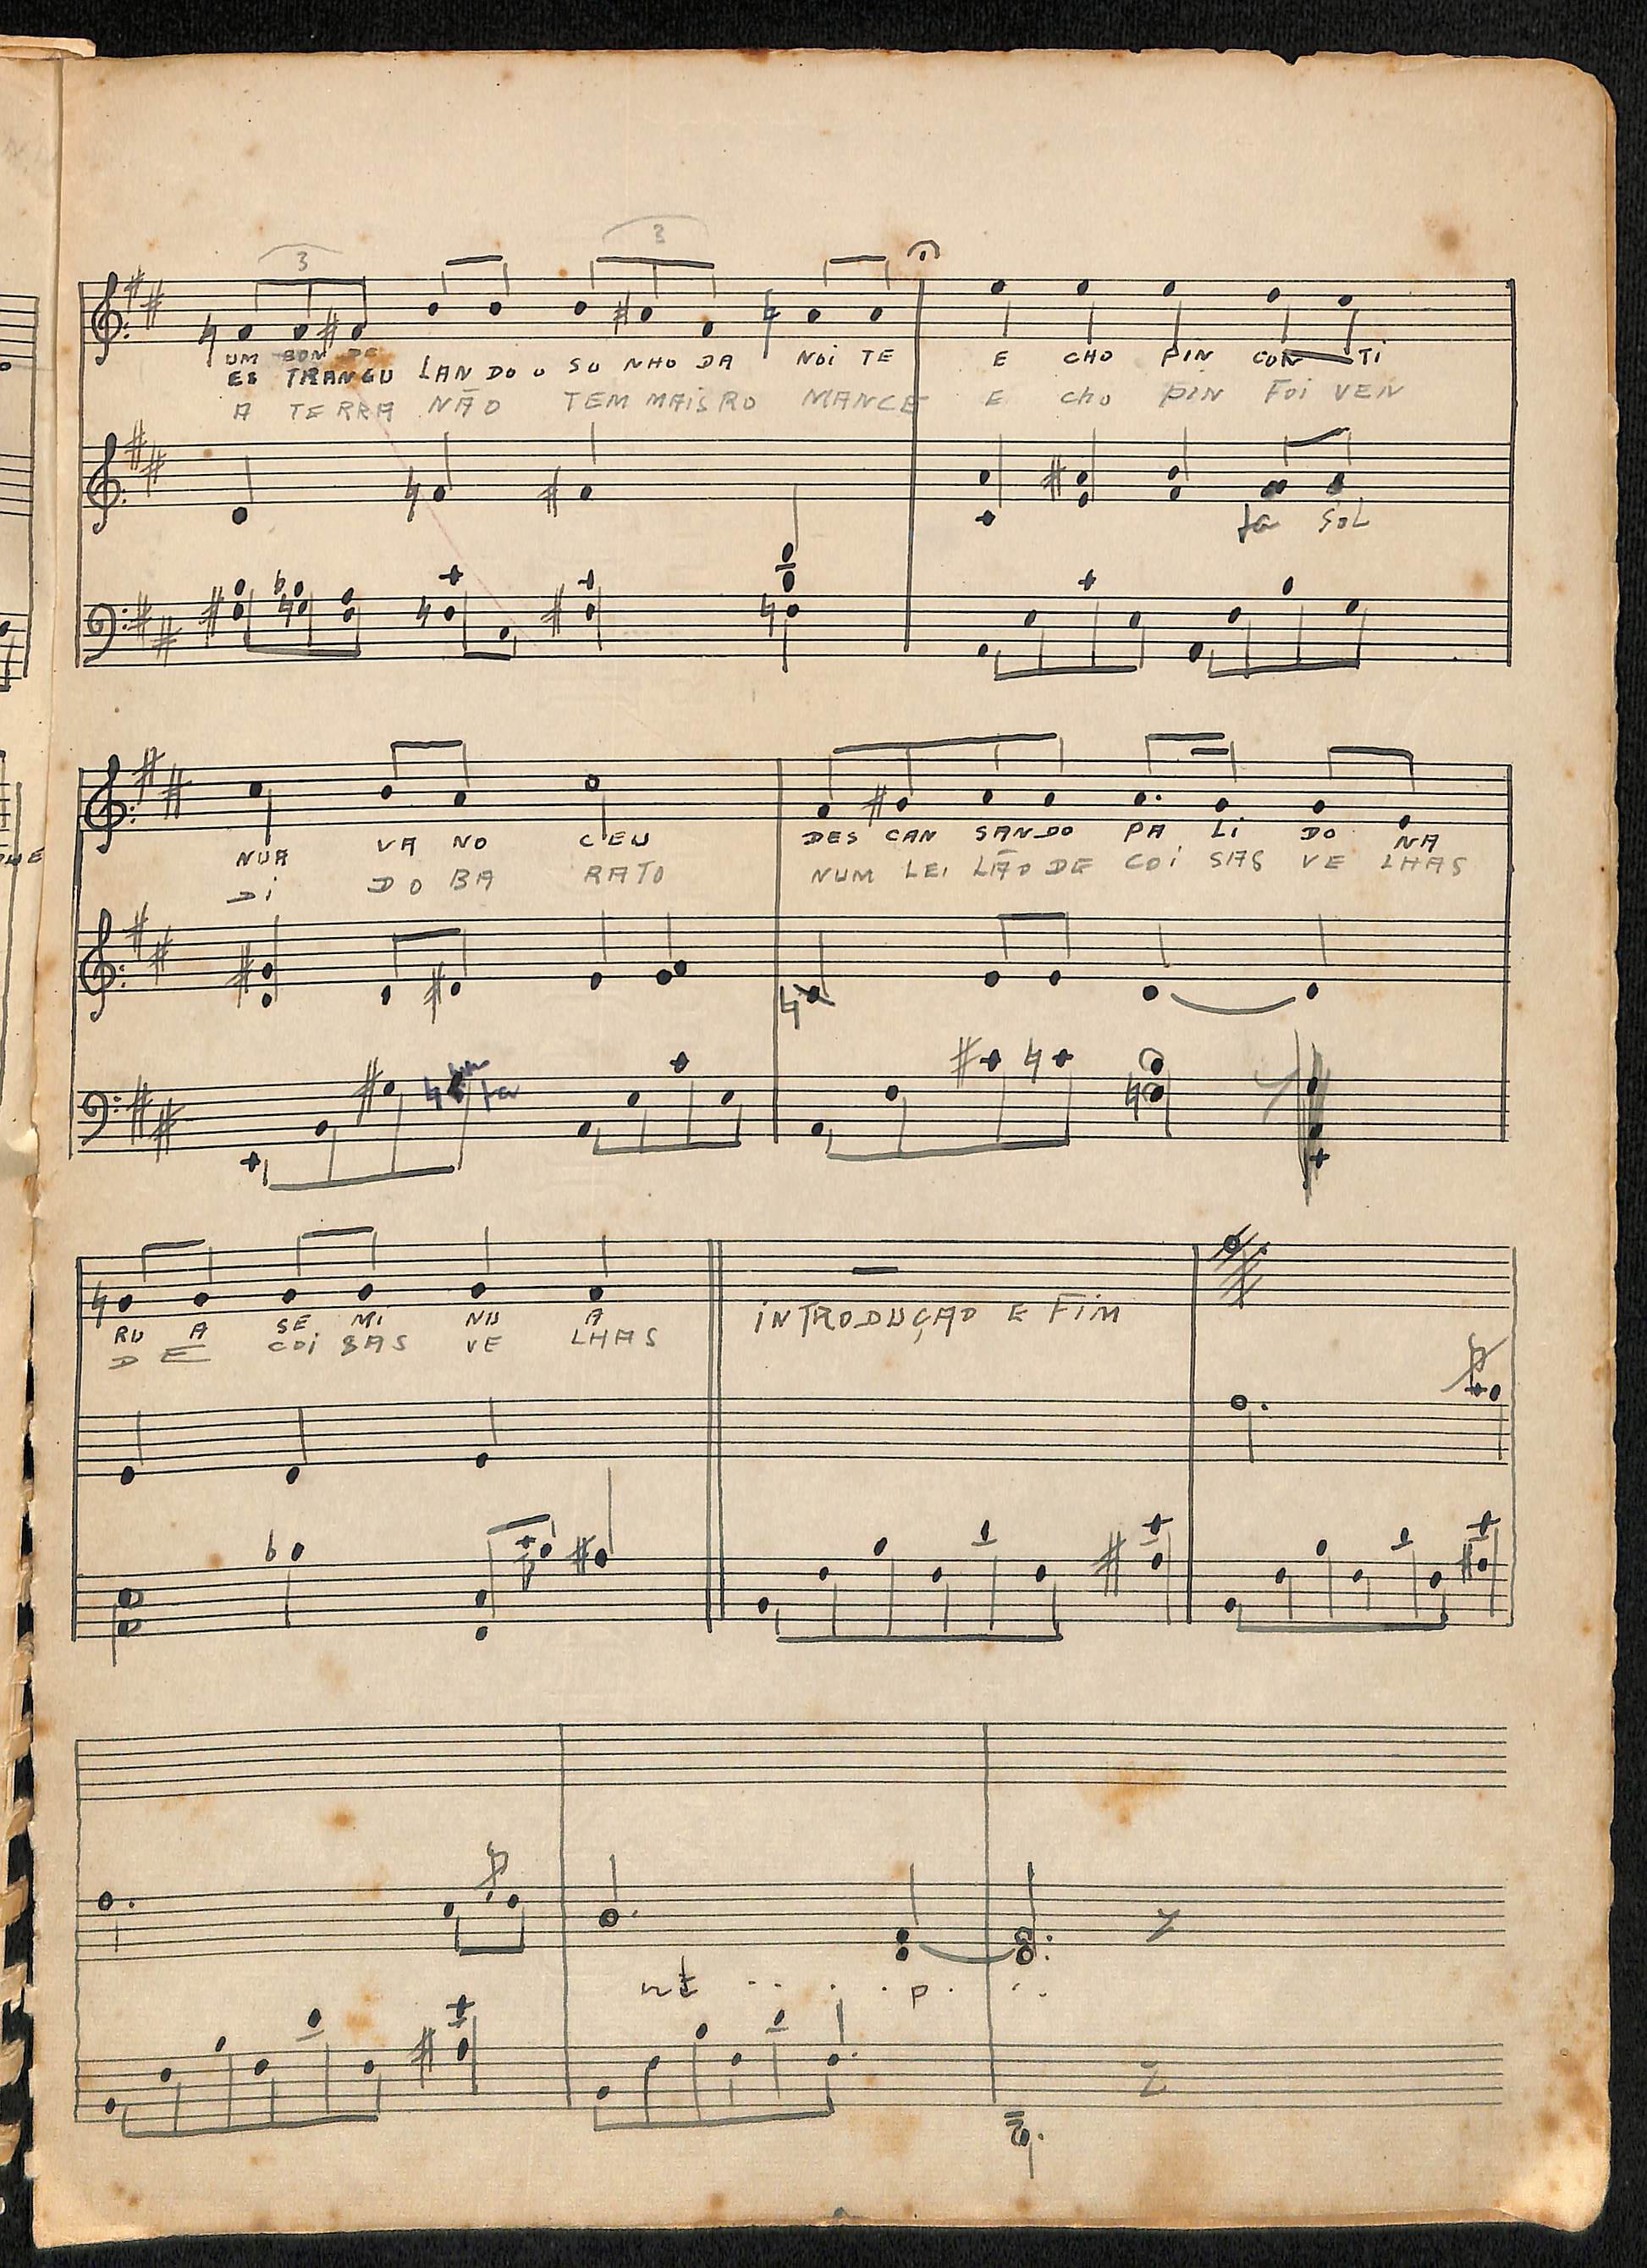 3 3
UM BON DE
ES TRANGU LAN DO O SO NHO DA NOI TE E CHO PIN CON TI
A TERRA NÃO TEM MAIS RO MANCE E cho PIN Foi VEN
fa SOL
NUA VA NO CEU DES CAN SAN DO PA Li DO NA
Di DO BA RATO NUM LEI LÃO DE COI SAS VE LHAS
fa
RU A SE Mi NU A iNTRODUÇÃO E FiM
DE COI SAS VE LHAS